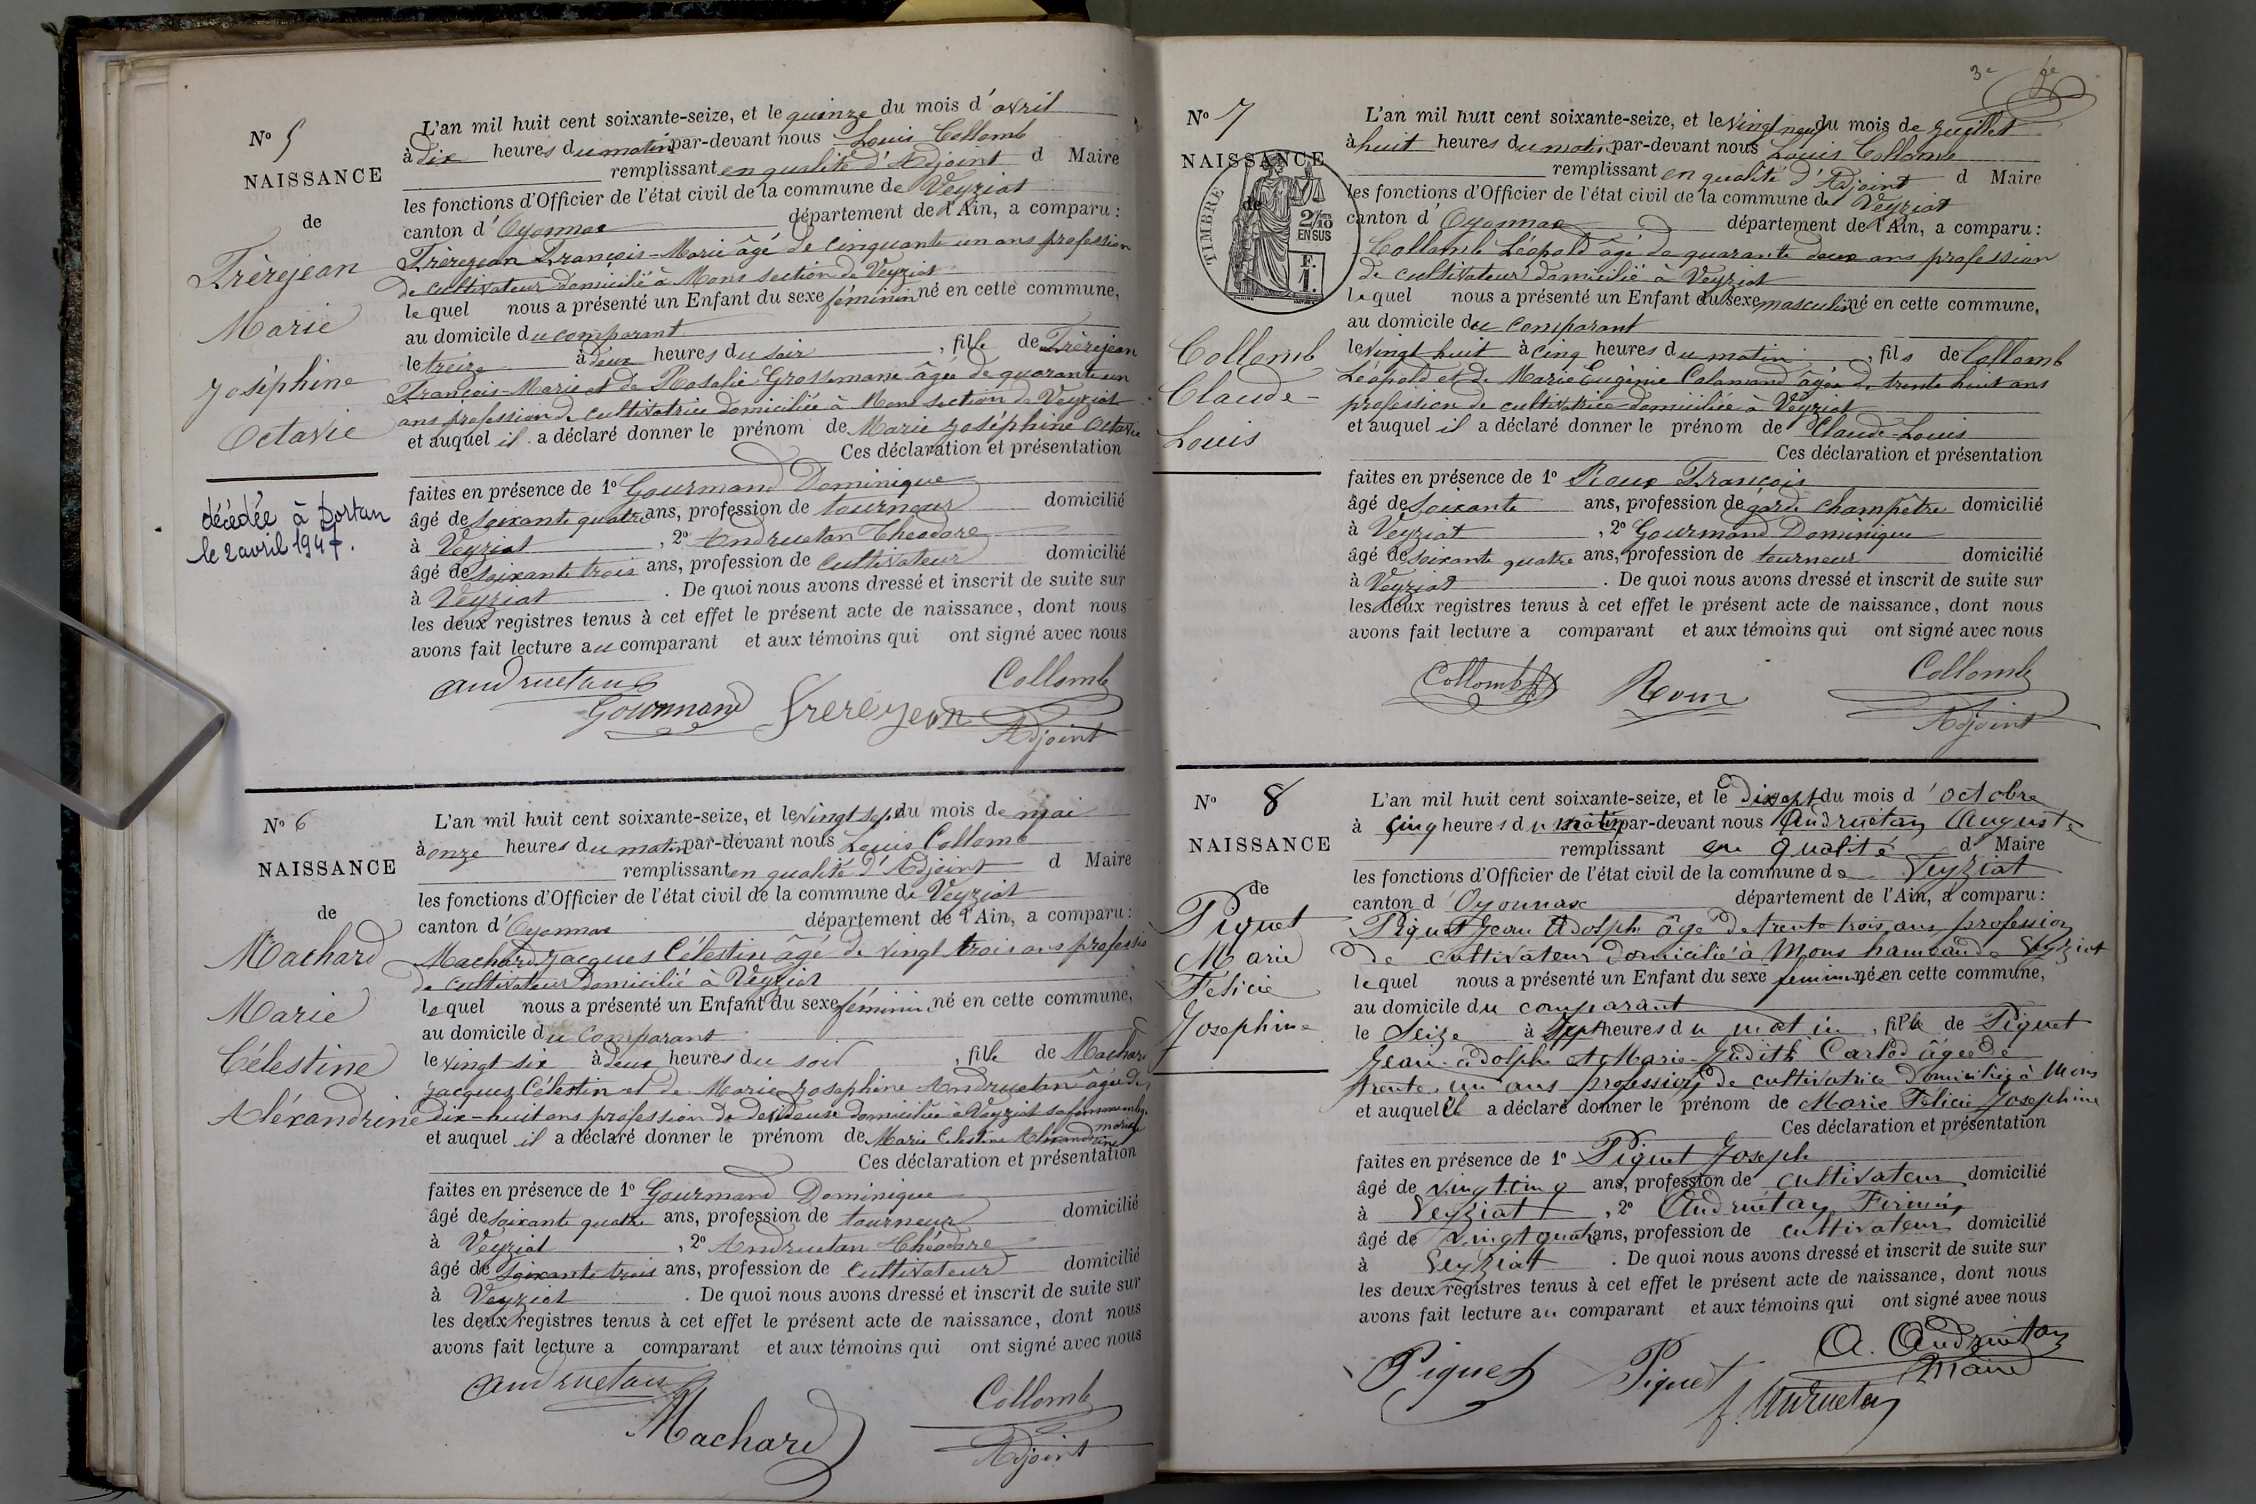 No 5
NAISSANCE
de
Frèrejean
Marie
Joséphine
Octavie
décédée à Dortan
le 2 avril 1947.
L'an mil huit cent soixante-seize, et le quinze du mois d'avril
à dix heures du matin par-devant nous Louis Collomb
remplissant en qualité d'Adjoint d Maire
les fonctions d'Officier de l'état civil de la commune de Veyziat
canton d'Oyonnax département de l'Ain, a comparu :
Frèrejean François-Marie âgé de cinquante un ans profession
de cultivateur domicilié à Mons section de Veyziat
lequel nous a présenté un Enfant du sexe féminin né en cette commune,
au domicile du comparant
le treize à deux heures du soir, fille de Frèrejean
François-Marie et de Rosalie Grossemane âgée de quarante un
ans profession de cultivatrice domiciliée à Mons section de Veyziat
et auquel il a déclaré donner le prénom de Marie Joséphine Octavie
Ces déclaration et présentation
faites en présence de 1o Gourmand Dominique
âgé de soixante quatre ans, profession de tourneur domicilié
à Veyziat, 2o Andruetan Théodore
âgé de soixante trois ans, profession de cultivateur domicilié
à Veyziat. De quoi nous avons dressé et inscrit de suite sur
les deux registres tenus à cet effet le présent acte de naissance, dont nous
avons fait lecture au comparant et aux témoins qui ont signé avec nous
Andruetan Collomb
Gourmand Frerejean Adjoint
No 6
NAISSANCE
de
Machard
Marie
Célestine
Aléxandrine
L'an mil huit cent soixante-seize, et le vingt sept du mois de mai
à onze heures du matin par-devant nous Louis Collomb
remplissant en qualité d'Adjoint d Maire
les fonctions d'Officier de l'état civil de la commune de Veyziat
canton d'Oyonnax département de l'Ain, a comparu :
Machard Jacques Célestin âgé de vingt trois ans profession
de cultivateur domicilié à Veyziat
lequel nous a présenté un Enfant du sexe féminin né en cette commune,
au domicile du comparant
le vingt six à deux heures du soir, fille de Machard
Jacques Célestin et de Marie Josephine Andruetan âgée de
dix-huit ans profession de domiciliée à Veyziat
et auquel il a déclaré donner le prénom de Marie Celestine Aléxandrine
Ces déclaration et présentation
faites en présence de 1o Gourmand Dominique
âgé de soixante quatre ans, profession de tourneur domicilié
à Veyziat, 2o Andruetan Théodore
âgé de soixante trois ans, profession de cultivateur domicilié
à Veyziat. De quoi nous avons dressé et inscrit de suite sur
les deux registres tenus à cet effet le présent acte de naissance, dont nous
avons fait lecture a comparant et aux témoins qui ont signé avec nous
Andruetan Collomb
Machard Adjoint
3e
No 7
NAISSANCE
de
TIMBRE
2/10
EN SUS
F.
1.
Collomb
Claude-
Louis
L'an mil huit cent soixante-seize, et le vingt neuf du mois de Juillet
à huit heures du matin par-devant nous Louis Collomb
remplissant en qualité d'Adjoint d Maire
les fonctions d'Officier de l'état civil de la commune de Veyziat
canton d'Oyonnax département de l'Ain, a comparu :
Collomb Léopold âgé de quarante deux ans profession
de cultivateur domicilié à Veyziat
lequel nous a présenté un Enfant du sexe masculin né en cette commune,
au domicile du comparant
le vingt huit à cinq heures du matin, fils de Collomb
Léopold et de Marie Eugénie Calamand âgée de trente huit ans
profession de cultivatrice domiciliée à Veyziat
et auquel il a déclaré donner le prénom de Claude-Louis
Ces déclaration et présentation
faites en présence de 1o Roux François
âgé de soixante ans, profession de garde champêtre domicilié
à Veyziat, 2o Gourmand Dominique
âgé de soixante quatre ans, profession de tourneur domicilié
à Veyziat. De quoi nous avons dressé et inscrit de suite sur
les deux registres tenus à cet effet le présent acte de naissance, dont nous
avons fait lecture a comparant et aux témoins qui ont signé avec nous
Collomb Roux Collomb
Adjoint
No 8
NAISSANCE
de
Piquet
Marie
Félicie
Josephine
L'an mil huit cent soixante-seize, et le dix sept du mois d'octobre
à cinq heures du matin par-devant nous Andruétan Auguste
remplissant en qualité d Maire
les fonctions d'Officier de l'état civil de la commune de Veyziat
canton d'Oyonnax département de l'Ain, a comparu :
Piquet Jean Adolph âgé de trente trois ans profession
de cultivateur domicilié à Mons hameau de Veyziat
lequel nous a présenté un Enfant du sexe feminin né en cette commune,
au domicile du comparant
le Seize à Sept heures du matin, fille de Piquet
Jean-adolphe et Marie-Judith âgée de
trente un ans profession de cultivatrice domiciliée à Mons
et auquel il a déclaré donner le prénom de Marie Félicie Josephine
Ces déclaration et présentation
faites en présence de 1o Piquet Joseph
âgé de vingt cinq ans, profession de cultivateur domicilié
à Veyziat, 2o Andruétan Firmin
âgé de vingt quatre ans, profession de cultivateur domicilié
à Veyziat. De quoi nous avons dressé et inscrit de suite sur
les deux registres tenus à cet effet le présent acte de naissance, dont nous
avons fait lecture au comparant et aux témoins qui ont signé avec nous
Piquet Piquet A. Andruétan
Maire
f. Andruetan